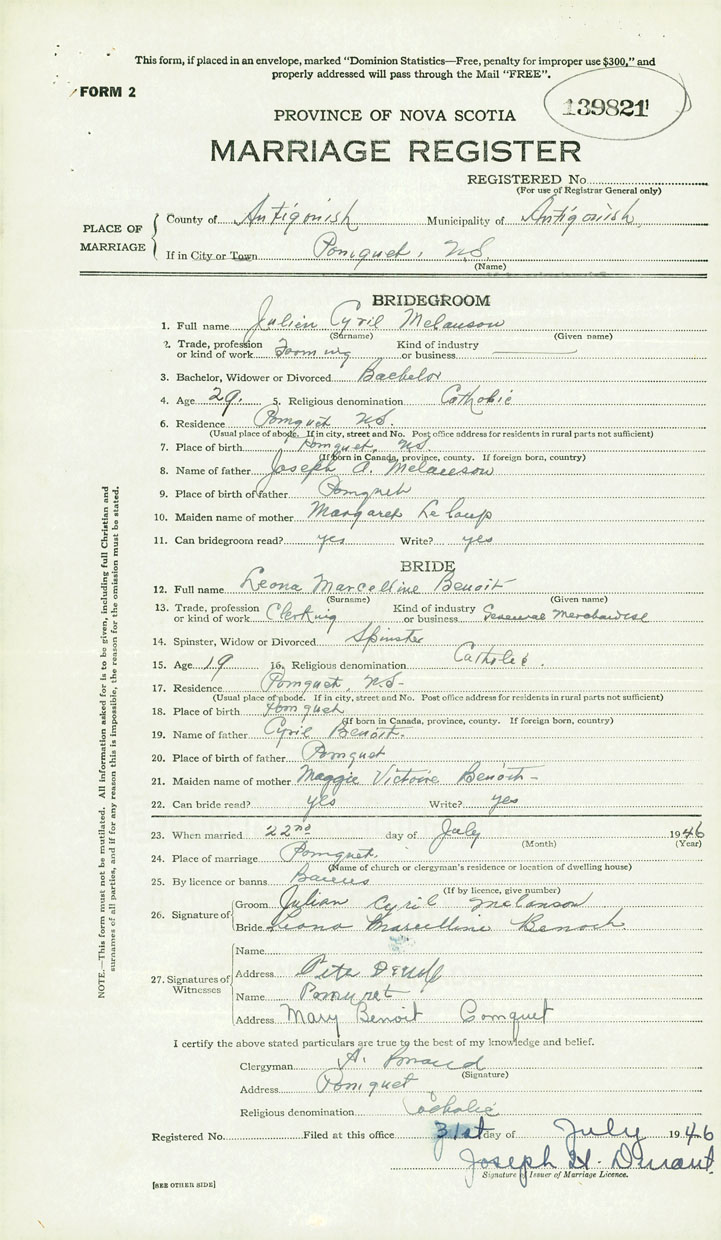 This form, if placed in an envelope, marked "Dominion Statistics—Free, penalty for improper use $300," and
properly addressed will pass through the Mail "FREE".
FORM 2
139821
PROVINCE OF NOVA SCOTIA
MARRIAGE REGISTER
REGISTERED No.
(For use of Registrar General only)
PLACE OF MARRIAGE { County of Antigonish Municipality of Antigonish
If in City or Town Pomquet, N.S.
(Name)
BRIDEGROOM
1. Full name Julien Cyril Melanson
(Surname) (Given name)
2. Trade, profession or kind of work Farming Kind of industry or business
3. Bachelor, Widower or Divorced Bachelor
4. Age 29. 5. Religious denomination Catholic
6. Residence Pomquet N.S.
(Usual place of abode. If in city, street and No. Post office address for residents in rural parts not sufficient)
7. Place of birth Pomquet, N.S.
(If born in Canada, province, county. If foreign born, country)
8. Name of father Joseph A. Melanson
9. Place of birth of father Pomquet
10. Maiden name of mother Margaret
11. Can bridegroom read? yes Write? yes
BRIDE
12. Full name Leona Marcelline Benoit
(Surname) (Given name)
13. Trade, profession or kind of work Clerking Kind of industry or business General Merchandise
14. Spinster, Widow or Divorced Spinster
15. Age 19 16. Religious denomination Catholic.
17. Residence Pomquet, N.S.
(Usual place of abode. If in city, street and No. Post office address for residents in rural parts not sufficient)
18. Place of birth Pomquet
(If born in Canada, province, county. If foreign born, country)
19. Name of father Cyril Benoit.
20. Place of birth of father Pomquet
21. Maiden name of mother Maggie Victoire Benoit
22. Can bride read? yes Write? yes
23. When married 22nd day of July 1946
(Month) (Year)
24. Place of marriage Pomquet.
(Name of church or clergyman's residence or location of dwelling house)
25. By licence or banns Banns
(If by licence, give number)
26. Signature of { Groom Julian Cyril Melanson
Bride Leona Marcelline Benoit
27. Signatures of Witnesses { Name
Address Pete
Name Pomquet
Address Mary Benoit Pomquet
I certify the above stated particulars are true to the best of my knowledge and belief.
Clergyman A.
(Signature)
Address Pomquet
Religious denomination Catholic
Registered No. Filed at this office 31st day of July 1946
Joseph H.
Signature of Issuer of Marriage Licence.
[SEE OTHER SIDE]
NOTE.—This form must not be mutilated. All information asked for is to be given, including full Christian and
surnames of all parties, and if for any reason this is impossible, the reason for the omission must be stated.